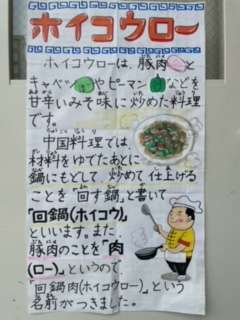 ホイコウロー
ホイコウローは、豚肉と
キャベツやピーマンなどを
甘辛いみそ味に炒めた料理
です。
中国料理では、
材料をゆでたあとに
鍋にもどして、炒めて仕上げる
ことを「回す鍋」と書いて
「回鍋(ホイコウ)」
といいます。また、
豚肉のことを「肉
(ロー)」というので
「回鍋肉(ホイコウロー)」という
名前がつきました。